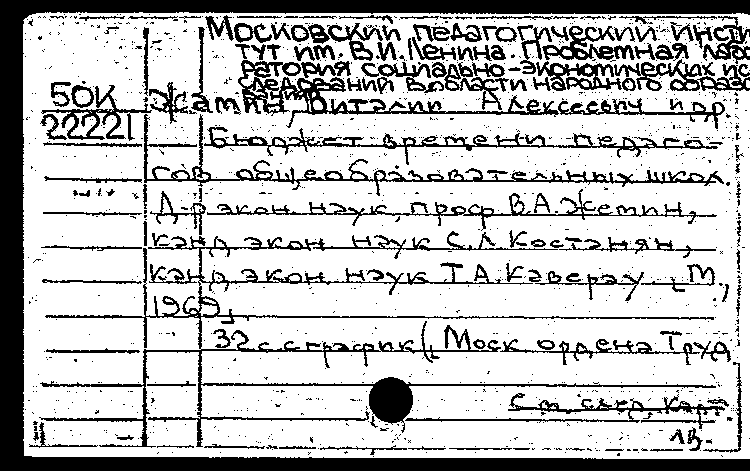 Московский педагогический инсти
тут им. В.И. Ленина. Проблемная лабо
ратория социально-экономических ис
следований в области народного образо
50К Жамин, Виталий Алексеевич и др.
22221 Бюджет времени педаго-
гов общеобразовательных школ.
Д-р экон. наук, проф В.А. Жамин,
канд экон. наук С.Л. Костанян,
канд. экон. наук Т.А. Каверау. [М.,
1969].
32 с с график (Моск ордена Труд
См. след. карт.